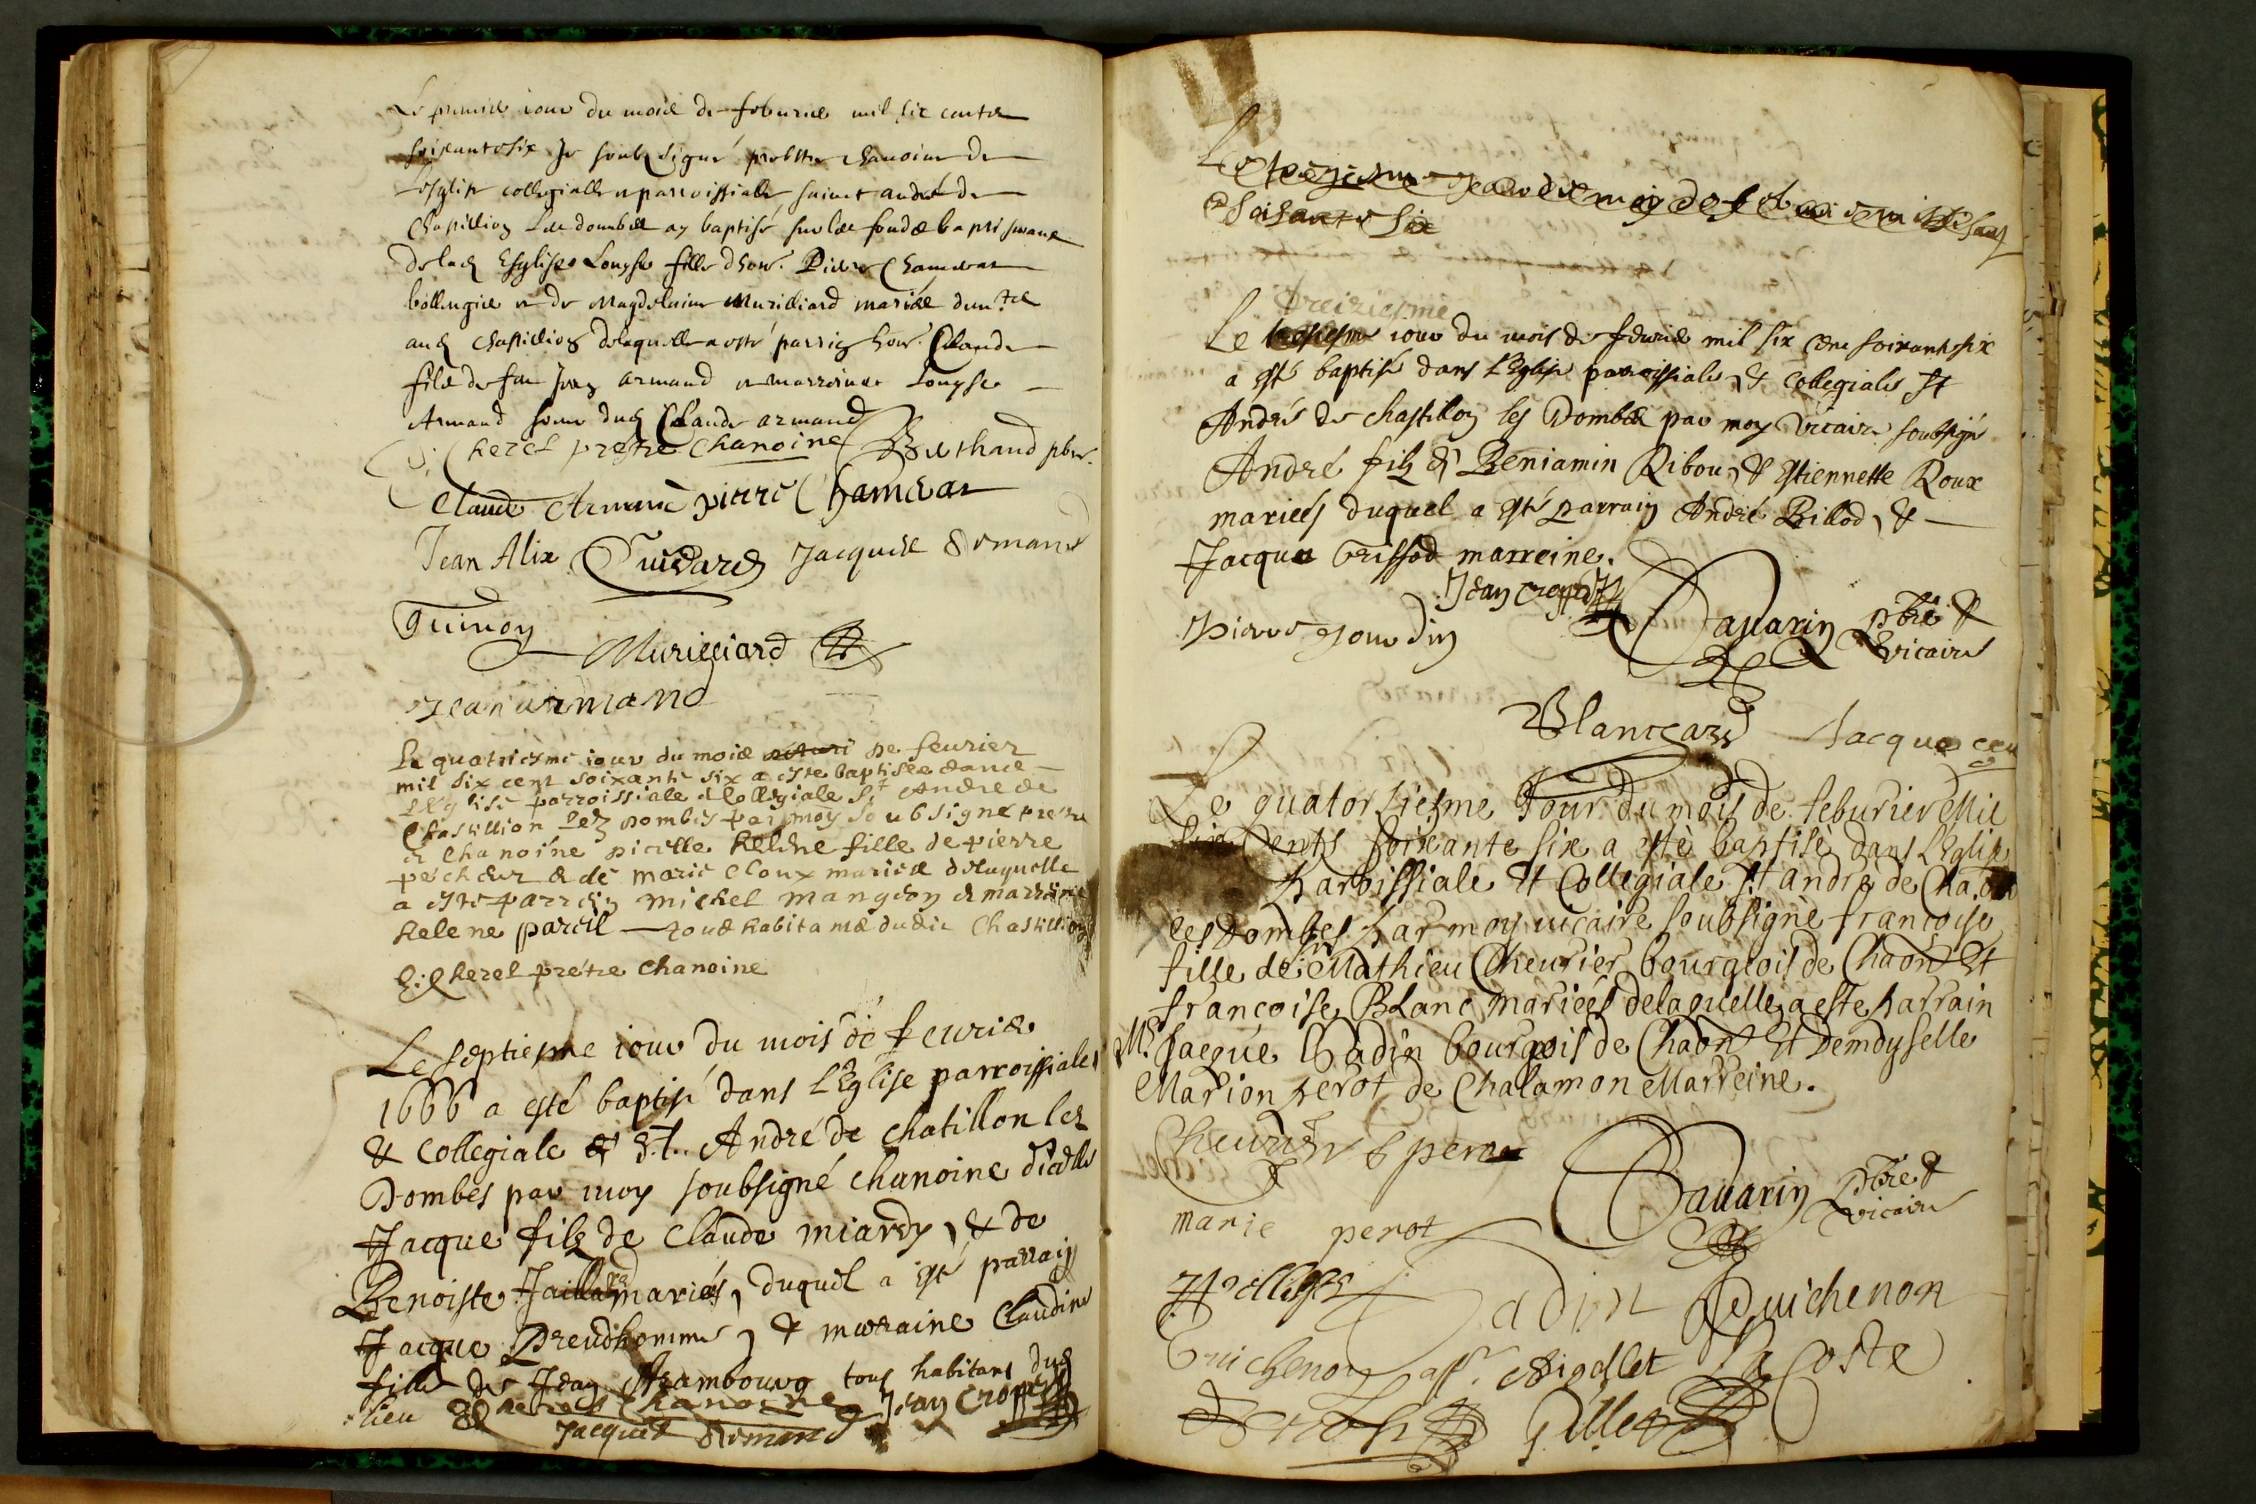 Le premier iour du mois de feburier mil six centz
soixante six Je soubzsigné prebstre chanoine de
Lesglise collegialle & parroissialle sainct andré de
Chastillion Les dombes ay baptisé sur les fondz baptismaux
de lad Esglise Louyse fille dhon. Pierre Chamerat
bollengier & de Magdelaine Murilliard mariés
aud Chastillion delaquelle a esté parrin hon. Claude
filz de feu Jean armand & marreinne Louyse
Armand soeur dud Claude armand
Cherel prestre Chanoine Berthaud pbre.
Claude Armand pierre Chamerat
Jean Alix Guidard Jacques Romand
Guinon
Murilliard
Jean armand
Le quatriesme iour du mois de feurier
mil six cent soixante six a este baptisée dance
L'Eglise parroissiale & Collegiale St Andre de
Chastillion Lez Dombes par moy soubsigne pretre
& Chanoine dicelle helene fille de pierre
pecheur & de marie Cloux mariés delaquelle
a esté parrein michel mangeon & marreine
helene pareil tous habitans dudic Chastillion
Cherel pretre chanoine
Le septiesme iour du mois de feurier
1666 a esté baptisé dans l'Eglise parroissiales
& Collegiale St. André de Chatillon les
Dombes par moy soubsigné chanoine dicelle
Jacque filz de Claude miardy, & de
Benoiste mariés, duquel a esté parrain
Jacque Preudhomme, & marraine Claudine
fille de Jean Arambourg tous habitans dud
lieu Cherel chanoine Jean Cropet
Jacques Romand
Le tresiesme Jour du moy de
& soisante six
treiziesme
Le iour du mois de feurier mil six cens soixante six
a esté baptisé dans l'Eglise parroissiale, & Collegiale St
André de Chastillon les Dombes par moy vicaire soubsigné
André filz de Beniamin Ribou, & Estiennette Roux
mariés duquel a esté parrain André Billod, &
Jacque Brissod marreine.
Jean Cropet
Pierre Jourdin Dauarin pbre & vicaire
Blanchard Jacque
Le quatorsiesme Jour du mois de feburier Mil
six Cents soixante six a esté baptisé dans l'Eglise
Paroissiale Et Collegiale St andré de Chaon
les dombes par moy vicaire soubsigné françoise
fille de sr Mathieu Cheurier bourgeois de Chaon Et
françoise Blanc mariés delaquelle a este parrain
Mr. Jacque Badin bourgeois de Chaon Et Demoyselle
Marion perot de Chalamon Marreine.
Cheurier perot
Dauarin pbre & vicaire
marie perot
Badin Guichenon
Guichenon La Coste
Gillet